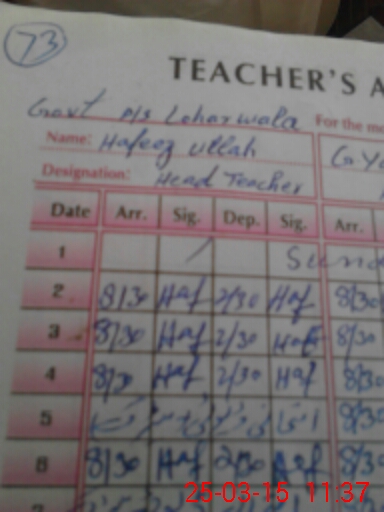 73
TEACHER'S A
Govt P/S Loharwala For the mo
Name: Hafeez ullah
Designation: Head Teacher
Date Arr. Sig. Dep. Sig. Arr.
1 Sund
2 8/30 Haf 2/30 Haf 8/30
3 8/30 Haf 2/30 Haf 8/30
4 8/30 Haf 2/30 Haf 8/30
5 8/30
6 8/30 Haf 2/30 Haf 8/30
25-03-15 11:37